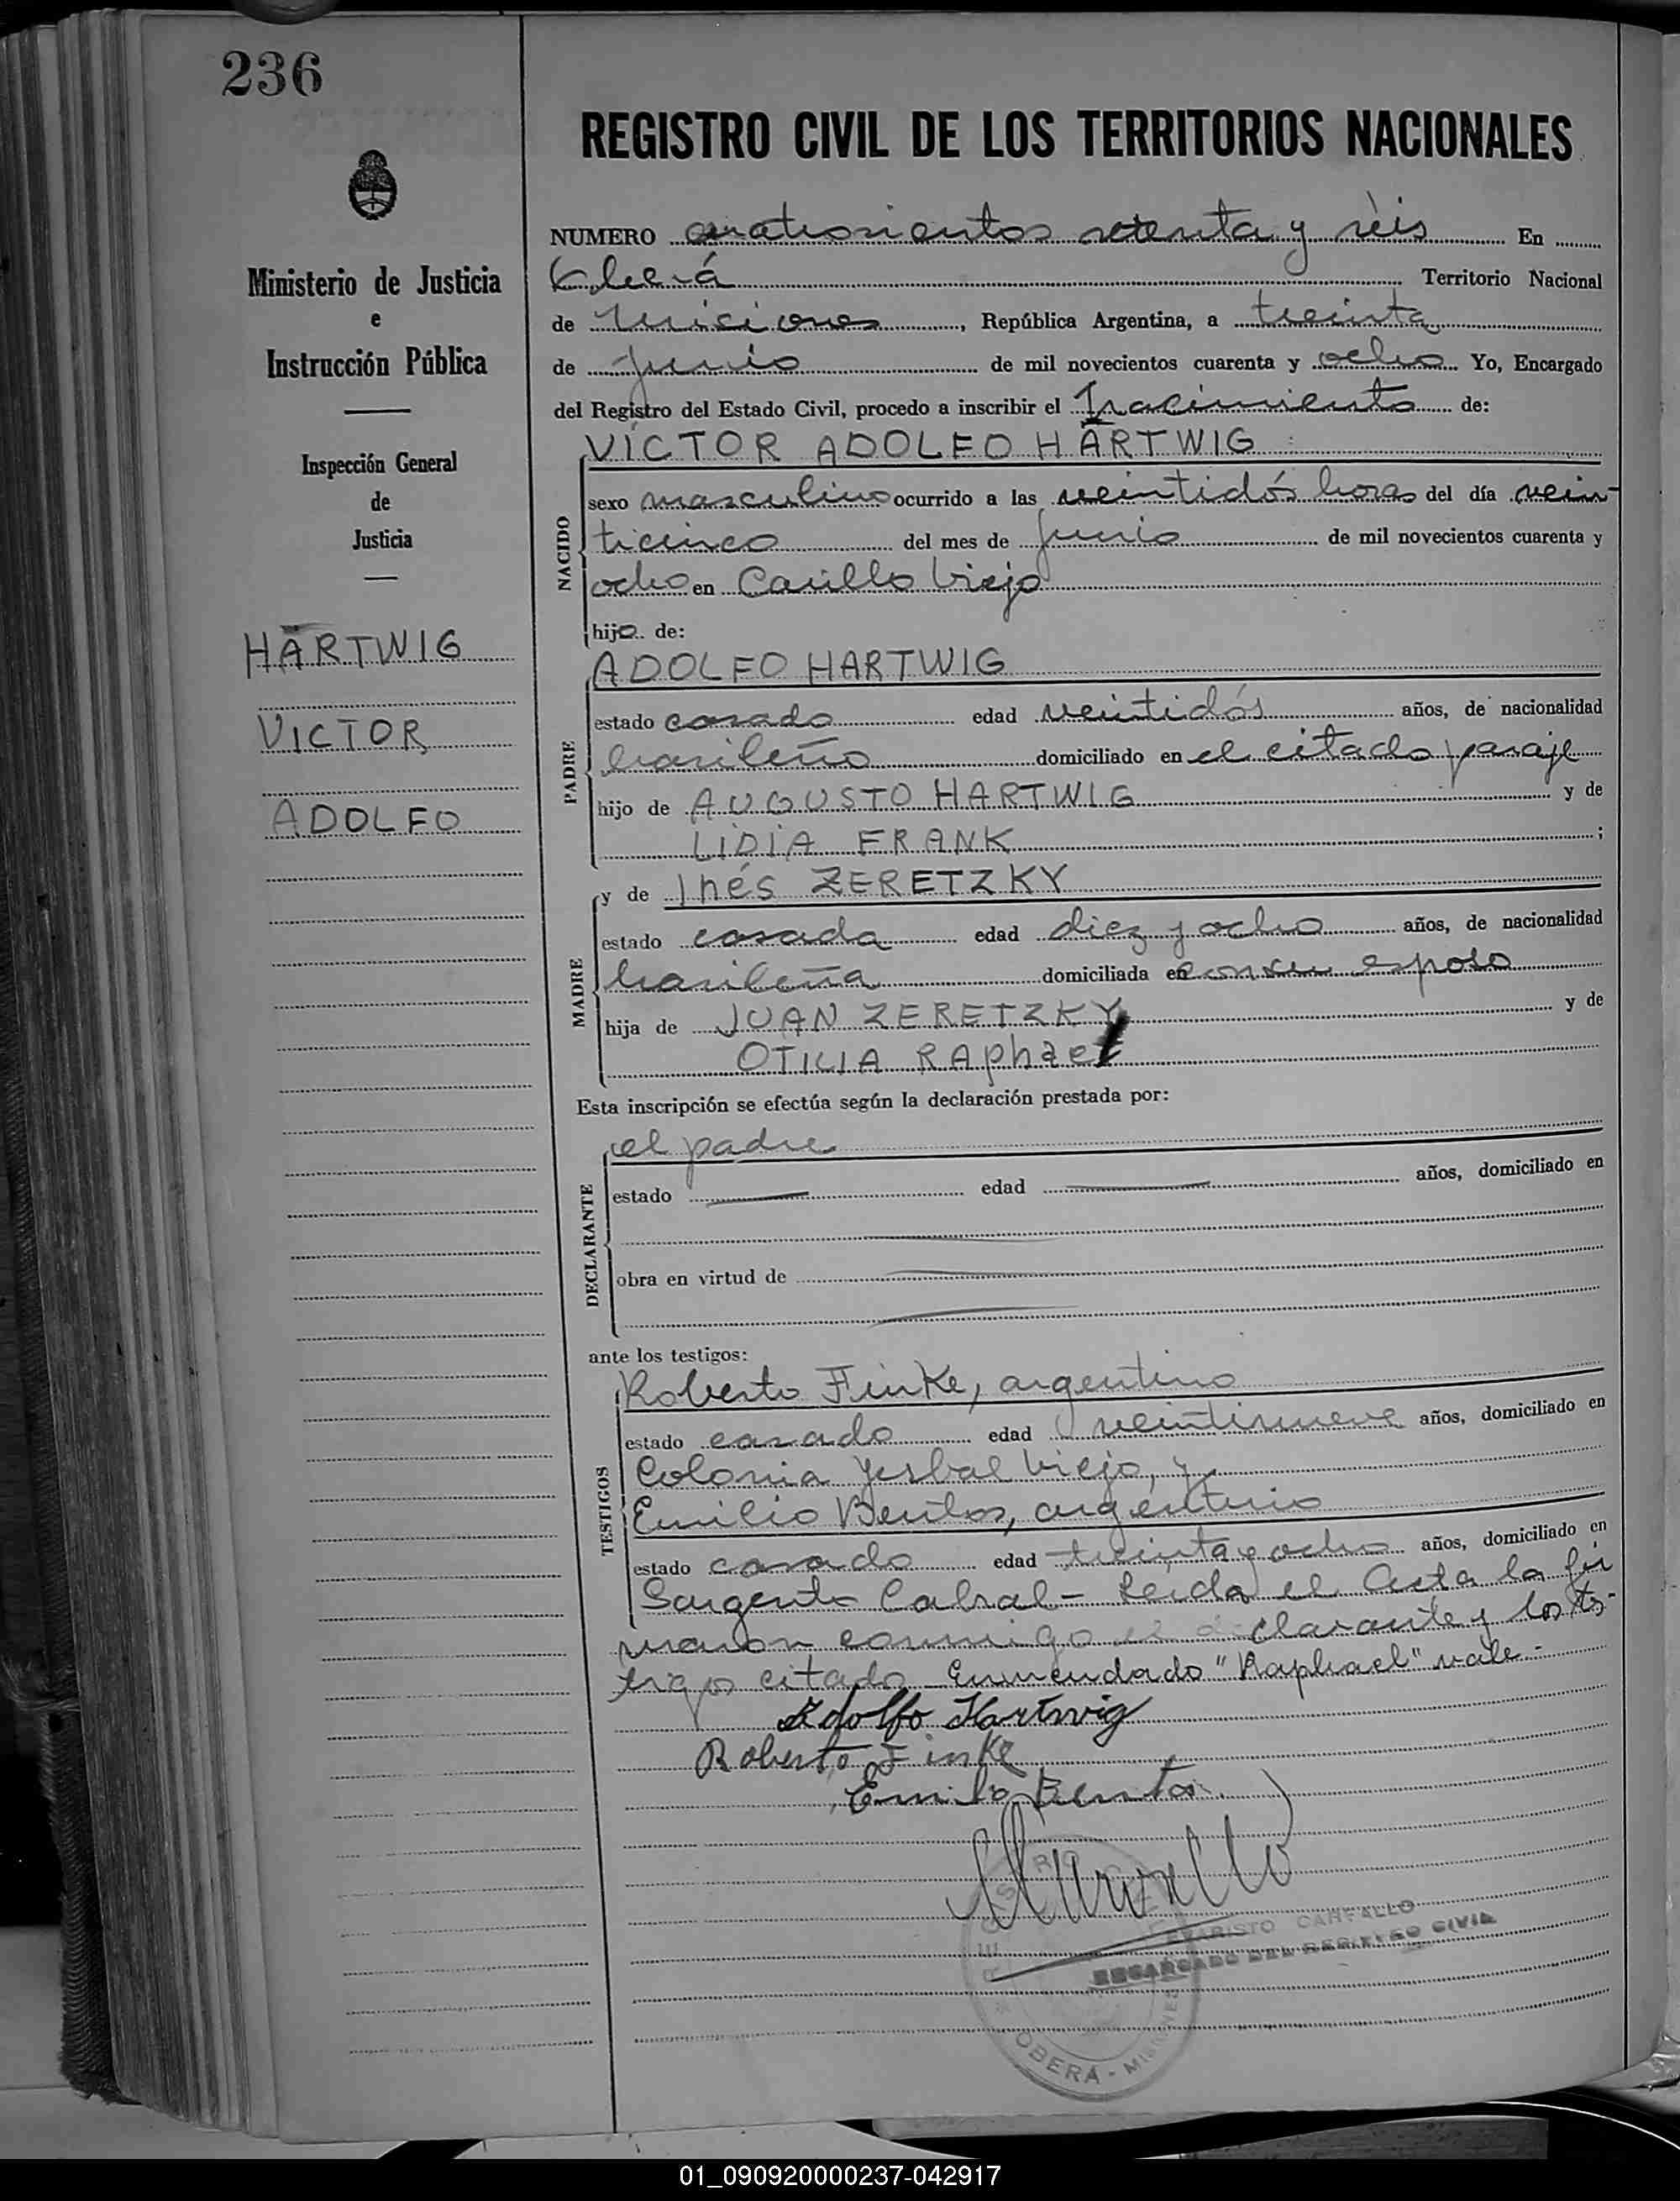 236
REGISTRO CIVIL DE LOS TERRITORIOS NACIONALES
Ministerio de Justicia
e
Instrucción Pública
Inspección General
de
Justicia
HARTWIG
VICTOR
ADOLFO
NUMERO cuatrocientos setenta y séis En
Oberá Territorio Nacional
de Misiones, República Argentina, a treinta
de junio de mil novecientos cuarenta y ocho Yo, Encargado
del Registro del Estado Civil, procedo a inscribir el nacimiento de:
VÍCTOR ADOLFO HARTWIG
NACIDO
sexo masculino ocurrido a las veintidós horas del día vein-
ticinco del mes de junio de mil novecientos cuarenta y
ocho en Viejo
hijo de:
ADOLFO HARTWIG
PADRE
estado casado edad veintidós años, de nacionalidad
brasileño domiciliado en el citado paraje
hijo de AUGUSTO HARTWIG y de
LIDIA FRANK ;
y de Inés ZERETZKY
MADRE
estado casada edad diez y ocho años, de nacionalidad
brasileña domiciliada en con su esposo
hija de JUAN ZERETZKY y de
OTILIA RAphael
Esta inscripción se efectúa según la declaración prestada por:
el padre
DECLARANTE
estado edad años, domiciliado en
obra en virtud de
ante los testigos:
Roberto Finke, argentino
TESTIGOS
estado casado edad veintinueve años, domiciliado en
Colonia Yerbal Viejo, y
Emilio Bentos, argentino
estado casado edad treinta y ocho años, domiciliado en
Sargento Cabral - Leída el Acta la fir
maron conmigo el declarante y los tes-
tigos citado Enmendado "Raphael" vale -
Adolfo Hartwig
Roberto Finke
Emilio Bentos
EVARISTO CARVALLO
ENCARGADO DEL REGISTRO CIVIL
OBERÁ - MISIONES
01_090920000237-042917